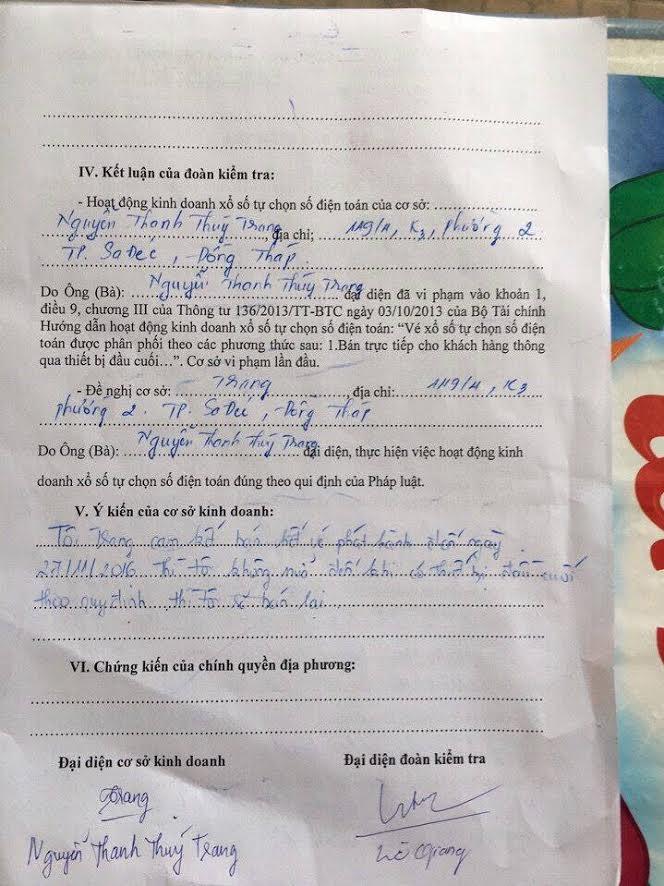 IV. Kết luận của đoàn kiểm tra:
- Hoạt động kinh doanh xổ số tự chọn số điện toán của cơ sở:
Nguyễn Thanh Thúy Trang, địa chỉ; 119/A, K3, phường 2
TP. SaĐéc, Đồng Tháp.
Do Ông (Bà): Nguyễn Thanh Thúy Trang đại diện đã vi phạm vào khoản 1,
điều 9, chương III của Thông tư 136/2013/TT-BTC ngày 03/10/2013 của Bộ Tài chính
Hướng dẫn hoạt động kinh doanh xổ số tự chọn số điện toán: “Vé xổ số tự chọn số điện
toán được phân phối theo các phương thức sau: 1.Bán trực tiếp cho khách hàng thông
qua thiết bị đầu cuối…”. Cơ sở vi phạm lần đầu.
- Đề nghị cơ sở: Trang, địa chỉ: 119/A, K3
phường 2. TP. SaĐéc, Đồng Tháp
Do Ông (Bà): Nguyễn Thanh Thúy Trang đại diện, thực hiện việc hoạt động kinh
doanh xổ số tự chọn số điện toán đúng theo qui định của Pháp luật.
V. Ý kiến của cơ sở kinh doanh:
Tôi Trang cam kết bán hết vé phát hành đến ngày
27/11/2016 thì tôi không đến khi có thiết bị đầu cuối
theo quy định thì tôi sẽ bán lại.
VI. Chứng kiến của chính quyền địa phương:
Đại diện cơ sở kinh doanh
Đại diện đoàn kiểm tra
Trang
Nguyễn Thanh Thúy Trang
Giang